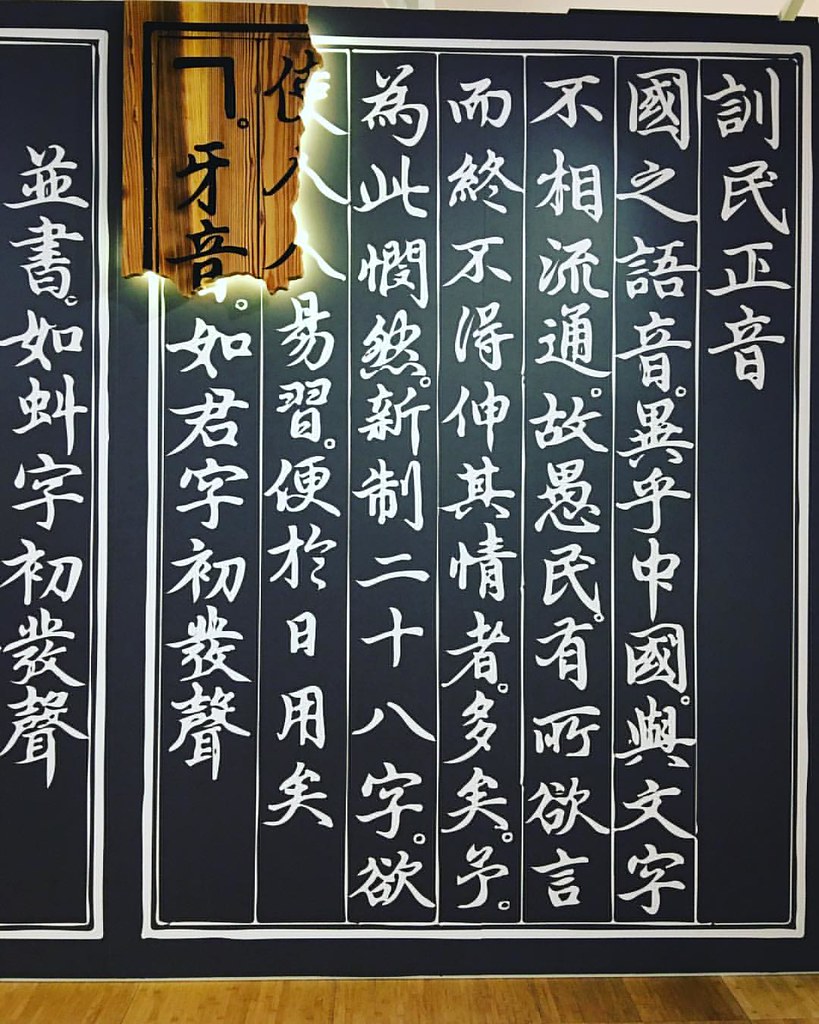 訓民正音
國之語音。異乎中國。與文字
不相流通。故愚民。有所欲言
而終不得伸其情者。多矣。予。
為此憫然。新制二十八字。欲
使人人易習。便於日用矣
ㄱ。牙音。如君字初發聲
並書。如虯字初發聲